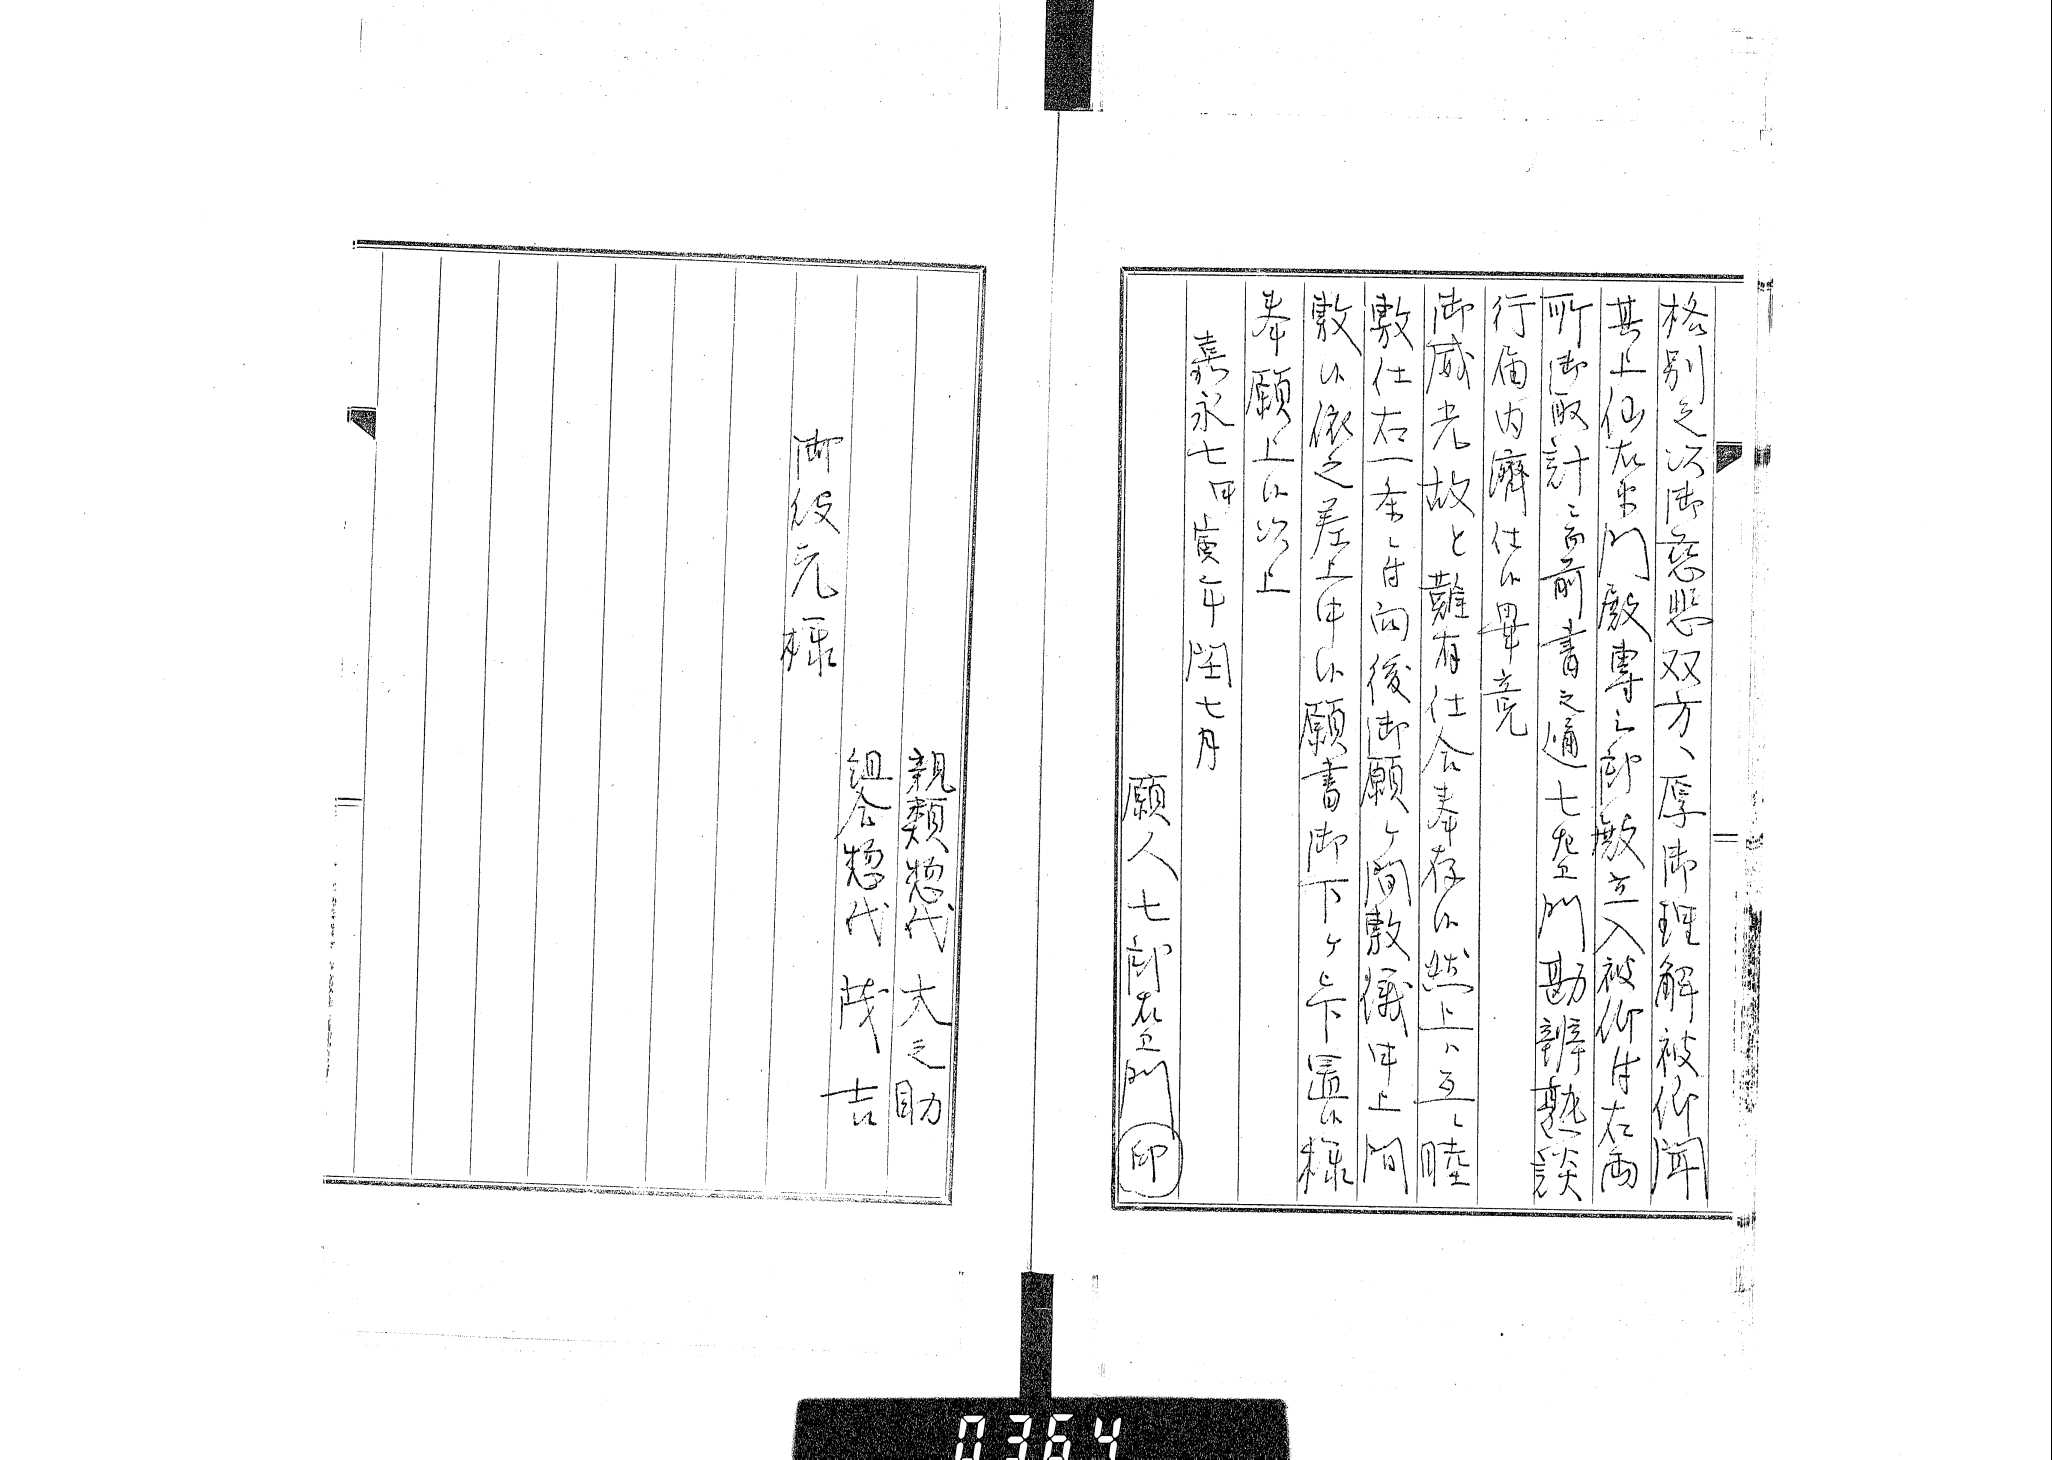 格別之以御慈悲双方ヘ厚御理解被仰聞
其上仙右衛門殿専之郎殿立入被仰付右両
所御取計ニ而前書之通七右衛門勘辨熟談
行届内済仕候畢竟
御威光故と難有仕合奉存候然上ハ互ニ睦
敷仕右一条ニ付向後御願ヶ間敷儀申上間
敷候依之差上申候願書御下ヶ被下置候様
奉願上候以上
嘉永七甲寅年閏七月
願人七郎右衛門 印
親類惣代 大之助
組合惣代 茂吉
御役元様
0364